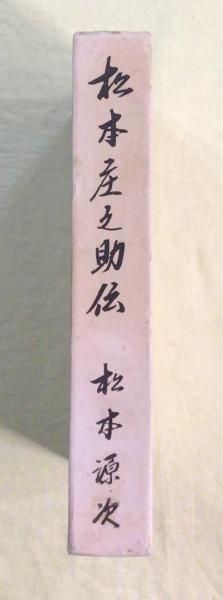 松本庄之助伝 松本源次